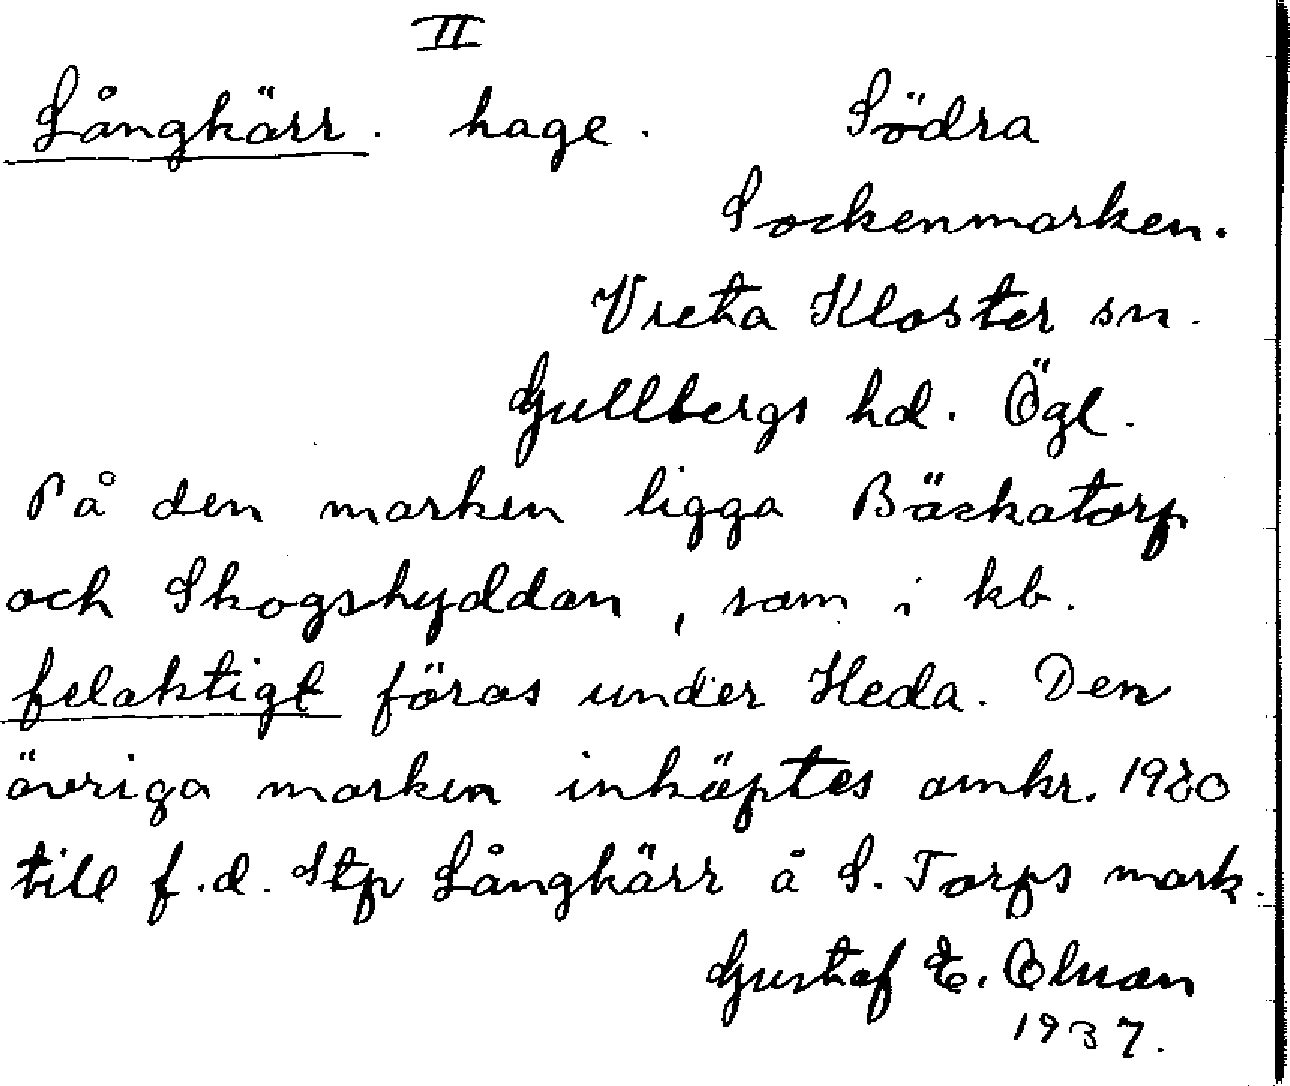 II
Långkärr. hage. Södra
Sockenmarken.
Vreta Kloster sn.
Gullbergs hd. Ögl.
På den marken ligga Bäckatorp
och Skogshyddan, som i kb.
felaktigt föras under Heda. Den
övriga marken inköptes omkr.
till f.d. Stp Långkärr å S. Torps mark.
Gustaf E. Olman
1937.